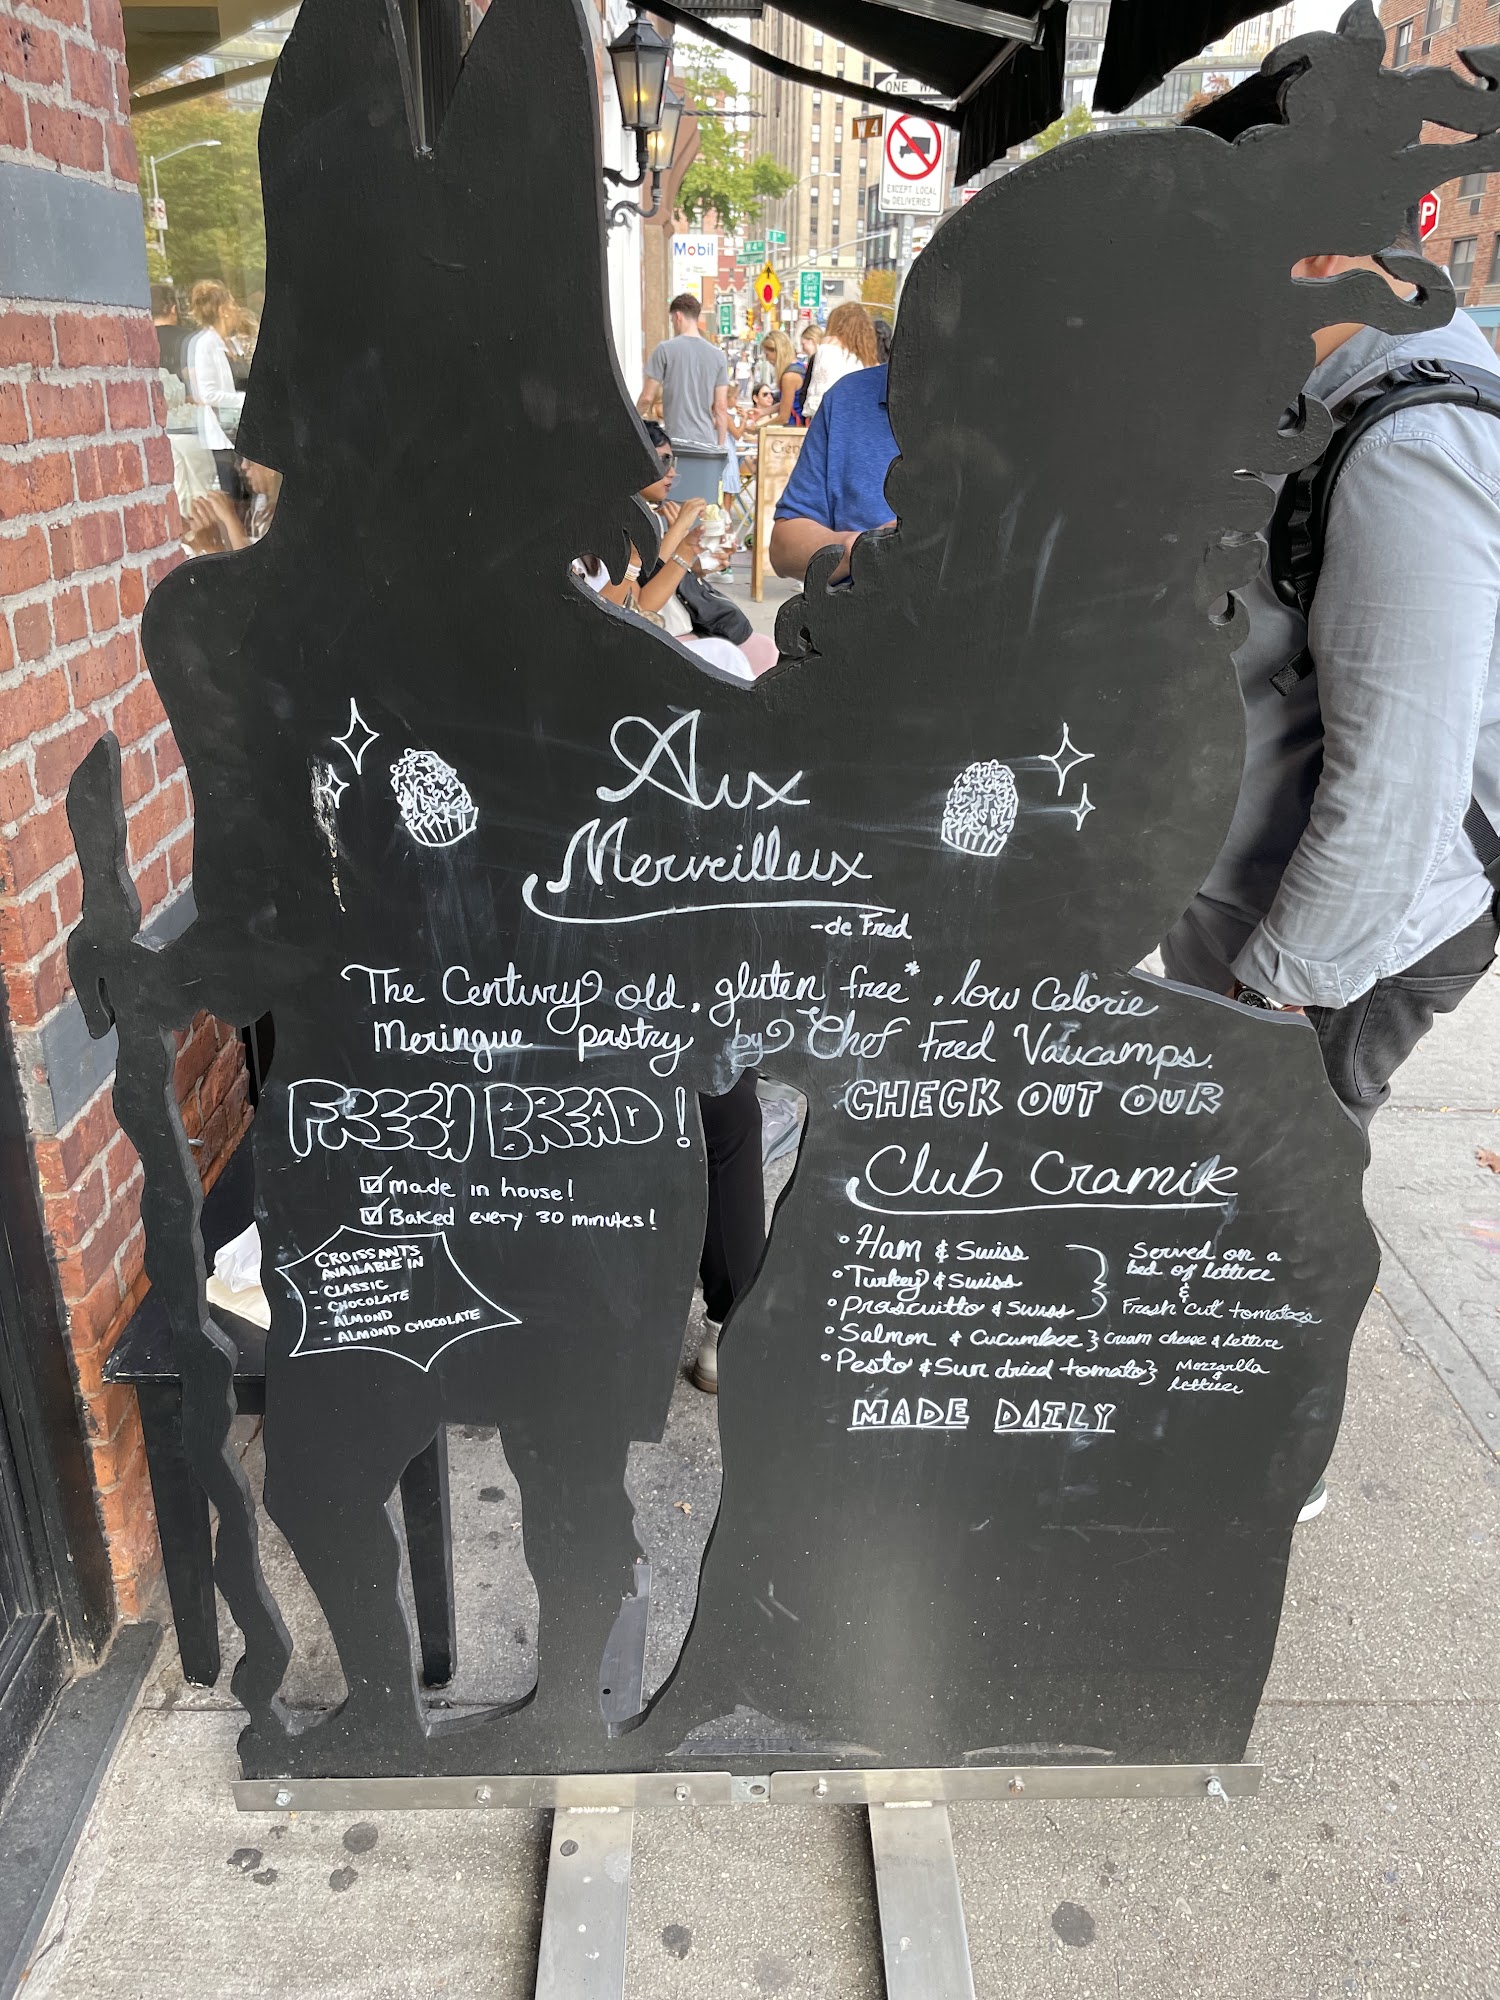 ONE W
W 4
EXCEPT LOCAL
DELIVERIES
Mobil
P
Aux
Merveilleux
-de Fred
The Century old, gluten free*, low Calorie
Meringue pastry by Chef Fred Vaucamps.
FRESH BREAD!
made in house!
Baked every 30 minutes!
CROISSANTS
AVAILABLE IN
- CLASSIC
- CHOCOLATE
- ALMOND
- ALMOND CHOCOLATE
CHECK OUT OUR
Club Cramik
Ham & Swiss
Turkey & Swiss
Proscuitto & Swiss
Served on a
bed of lettuce
&
Fresh cut tomatoes
Salmon & Cucumber } Cream cheese & lettuce
Pesto & Sun dried tomato } Mozzarella
&
lettuce
MADE DAILY